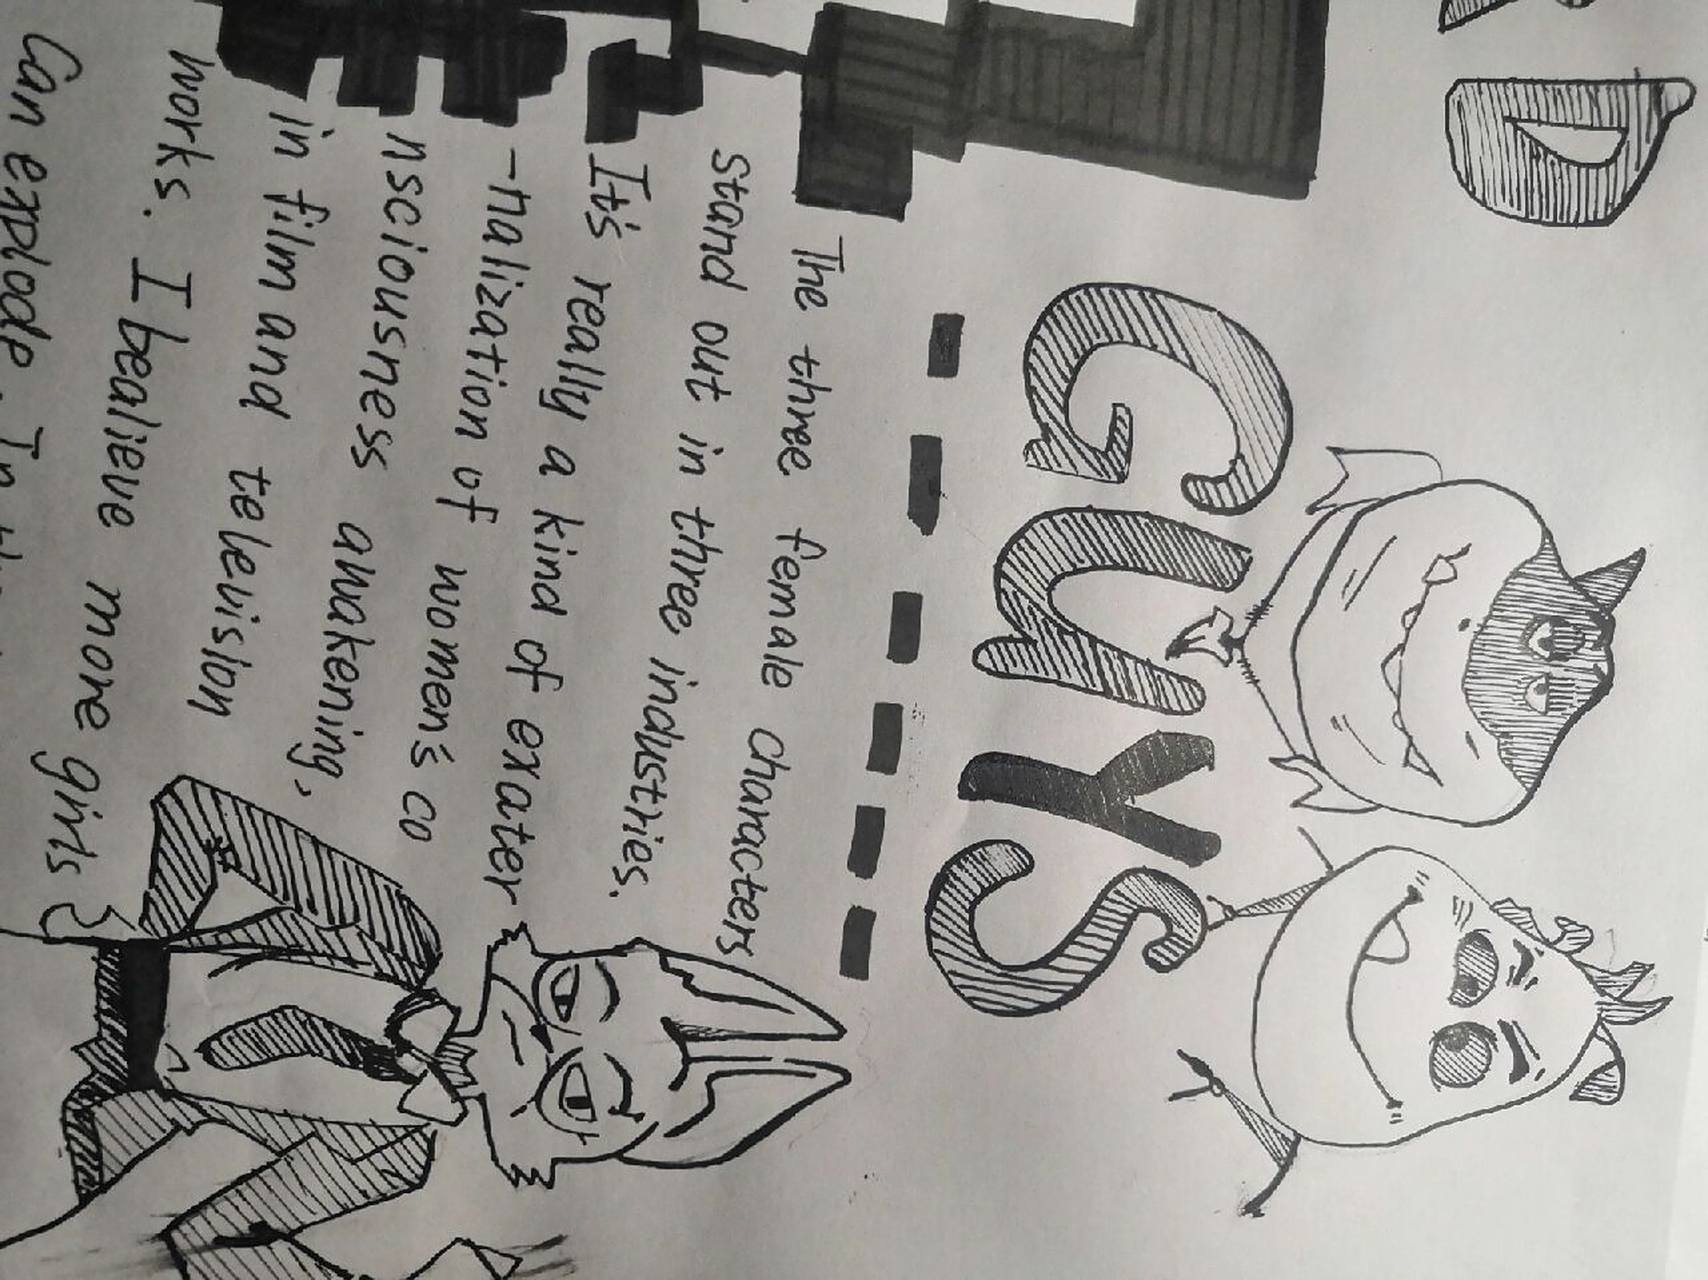 D
GUYS
The three female characters
stand out in three industhies.
It's really a kind of exater
-nalization of women's co
nsciousness awakening,
in film and television
works. I bealieve more girls
Can explode. In